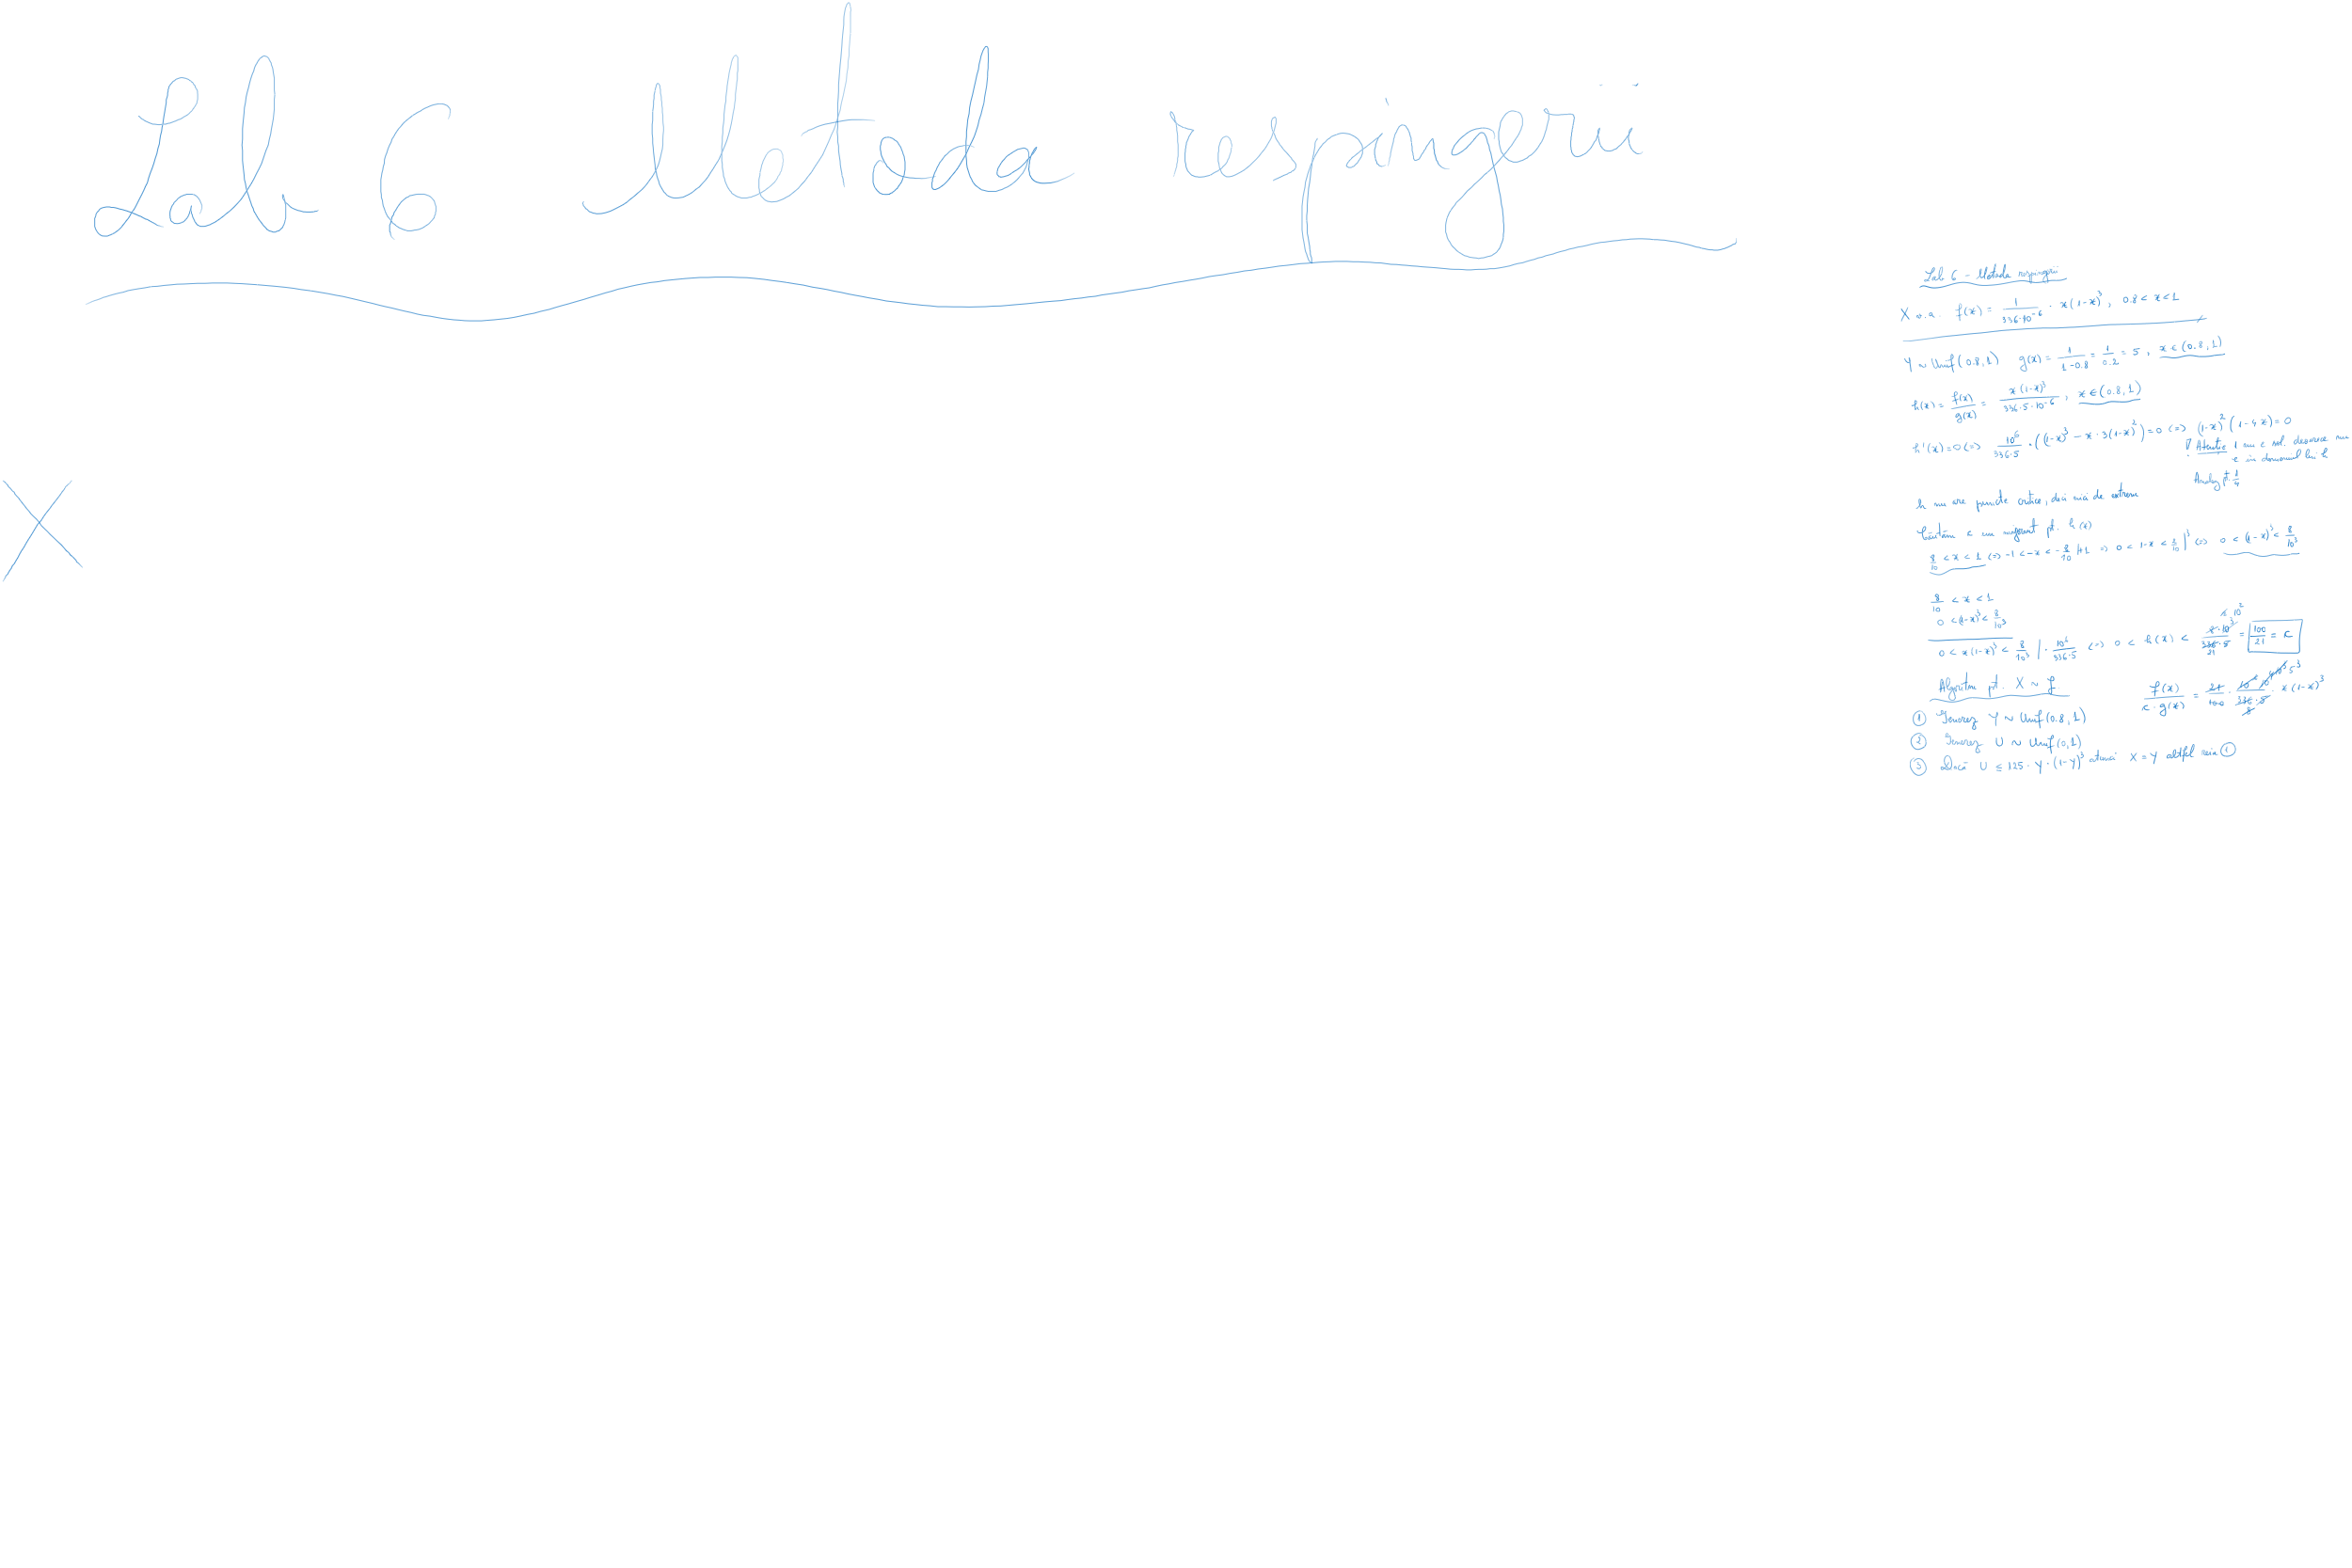 Lab 6 Metoda respingerii
X
Lab 6 - Metoda respingerii
X v.a. f(x) = 1/(336·10^-6) · x(1-x)^3, 0.8 < x < 1
Y ~ Unif(0.8, 1) g(x) = 1/(1-0.8) = 1/0.2 = 5, x ∈ (0.8, 1)
h(x) = f(x)/g(x) = x(1-x)^3/(336·5·10^-6), x ∈ (0.8, 1)
h'(x) = 0 (=) 10^6/(336·5) · ((1-x)^3 - x·3(1-x)^2) = 0 (=) (1-x)^2 (1-4x) = 0
! Atenție 1 nu e sol. deoarece nu
e in domeniul lui h
Analog pt. 1/4
h nu are puncte critice, deci nici de extrem
Căutăm c un majorant pt. h(x)
8/10 < x < 1 (=) -1 < -x < -8/10 |+1 => 0 < 1-x < 2/10 |^3 (=) 0 < (1-x)^3 < 8/10^3
8/10 < x < 1
0 < (1-x)^3 < 8/10^3
0 < x(1-x)^3 < 8/10^3 | · 10^6/(336·5) (=) 0 < h(x) < 8·10^3/(336·5) = 100/21 = c
Algoritm pt. X ~ f
f(x)/(c·g(x)) = 21/100 · 10^6/(336·5) · x(1-x)^3
① Generez Y ~ Unif(0.8, 1)
② Generez U ~ Unif(0,1)
③ Dacă U ≤ 125 · Y · (1-Y)^3 atunci X = Y altfel reia ①